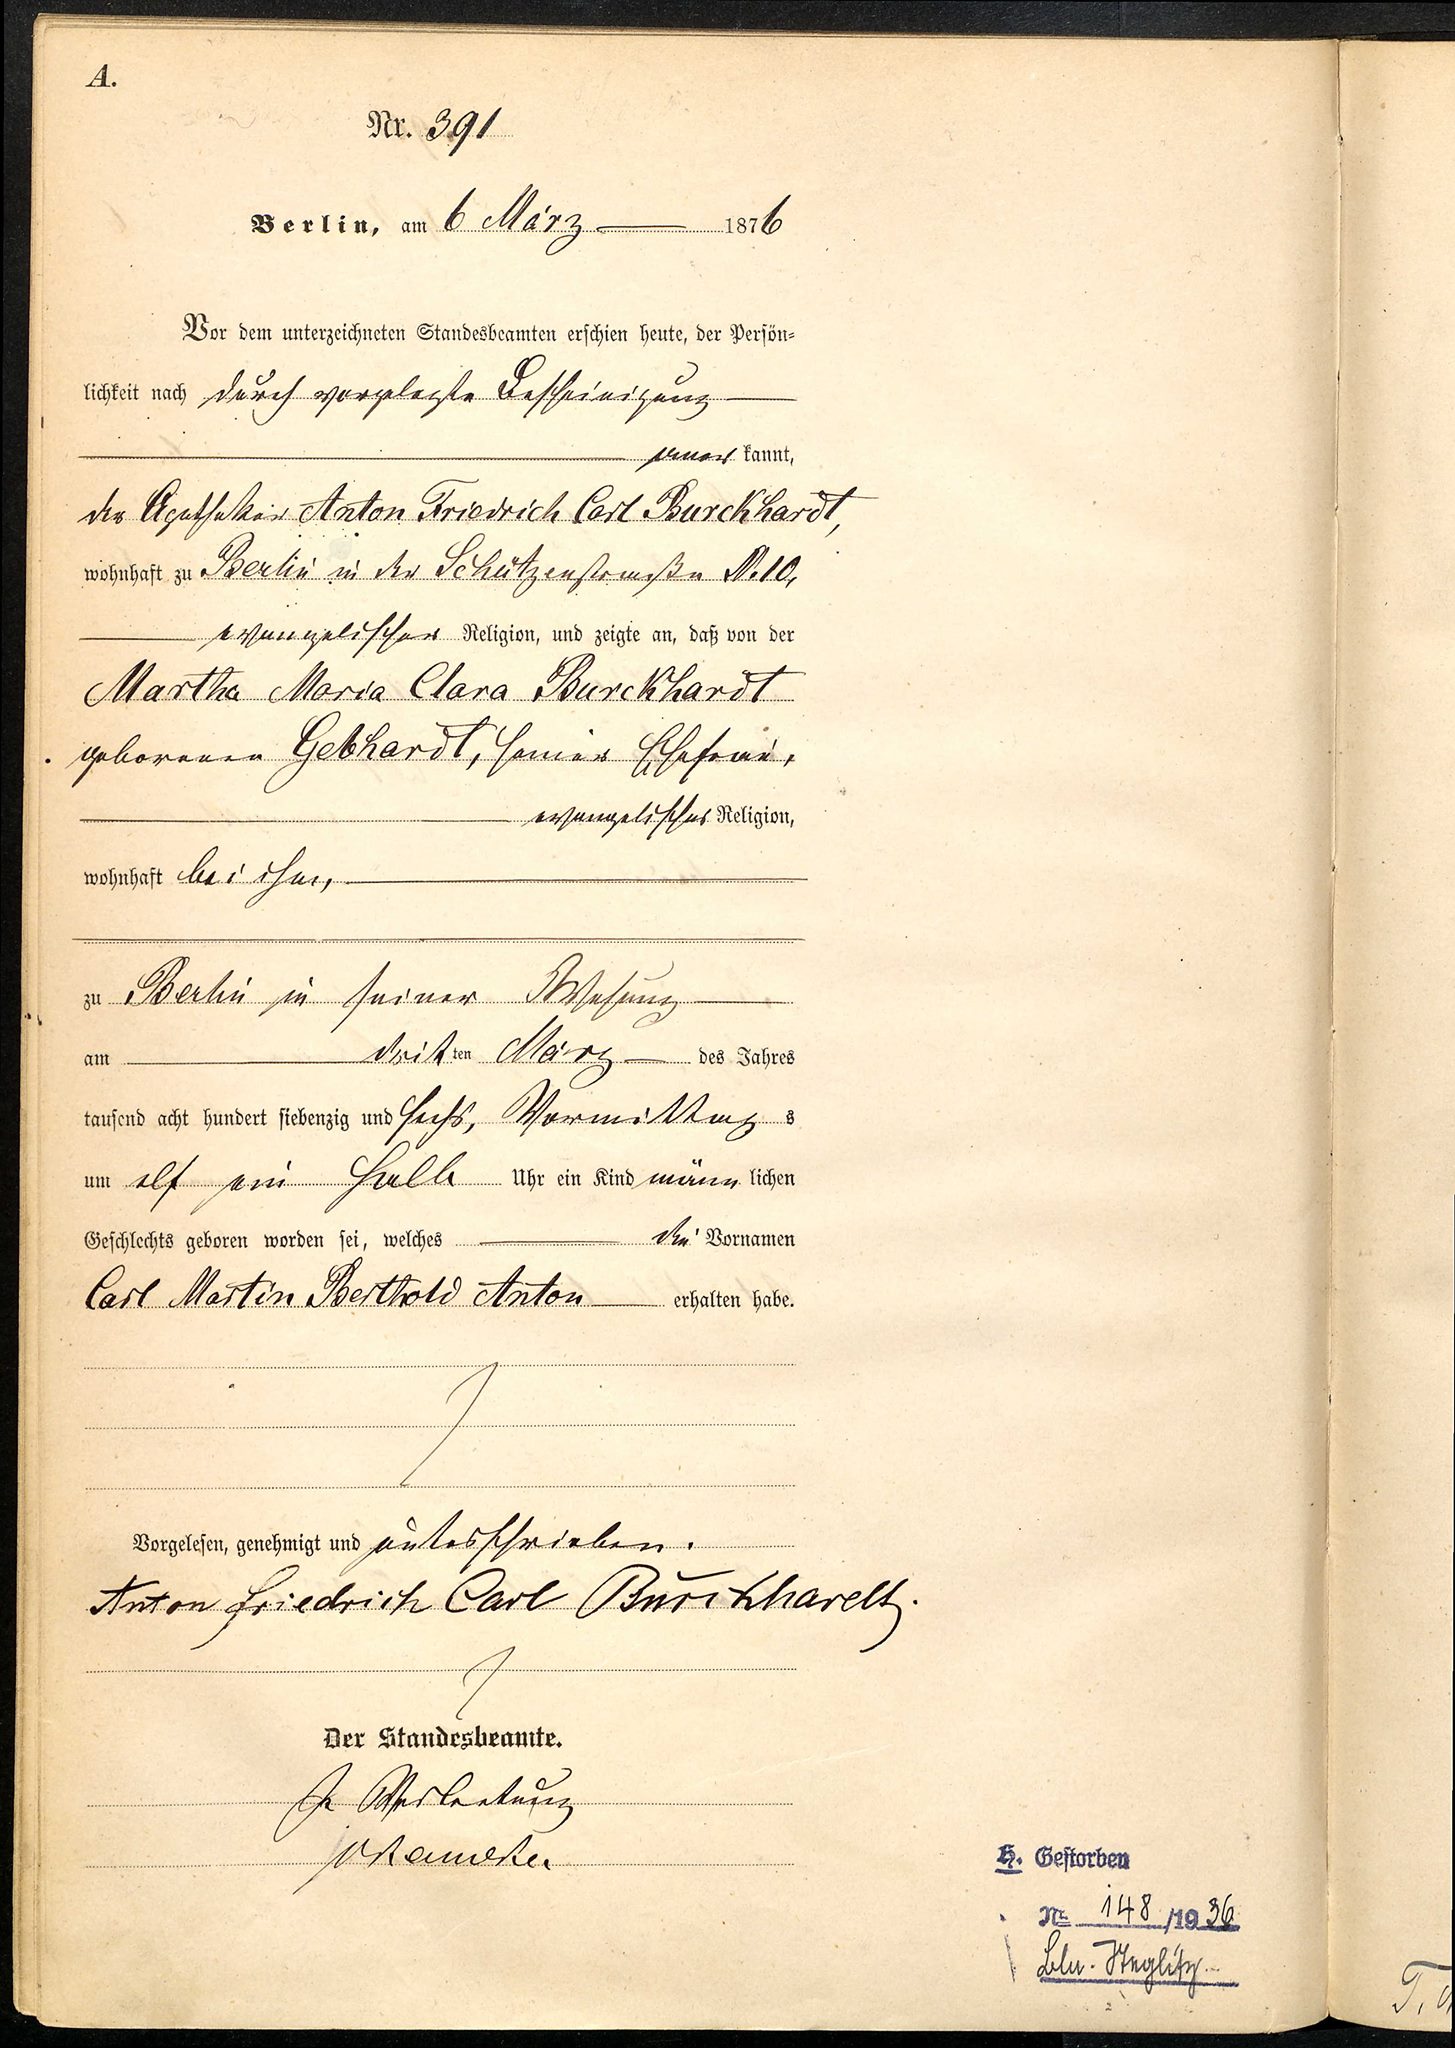 A.
Nr. 391
Berlin, am 6 März 1876
Vor dem unterzeichneten Standesbeamten erschien heute, der Persön=
lichkeit nach durch vorgelegte Bescheinigung
aner kannt,
der Apotheker Anton Friedrich Carl Burckhardt,
wohnhaft zu Berlin in der Schützenstraße N. 10,
evangelischer Religion, und zeigte an, daß von der
Martha Maria Clara Burckhardt
geborenen Gebhardt, seiner Ehefrau,
evangelischer Religion,
wohnhaft bei ihm,
zu Berlin in seiner Wohnung
am dritten März des Jahres
tausend acht hundert siebenzig und sechs, Vormittags
um elf ein halb Uhr ein Kind männlichen
Geschlechts geboren worden sei, welches die Vornamen
Carl Martin Berthold Anton erhalten habe.
Vorgelesen, genehmigt und unterschrieben.
Anton Friedrich Carl Burckhardt.
Der Standesbeamte.
In Vertretung
H. Gestorben
Nr. 148/1936
Bln.-Steglitz